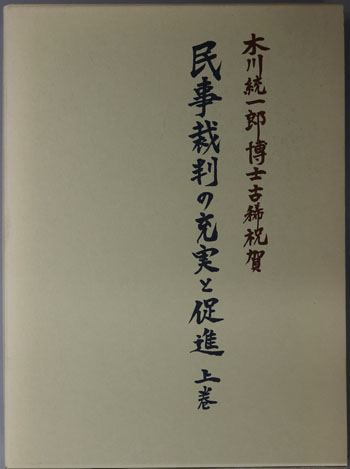 木川統一郎博士古稀祝賀
民事裁判の充実と促進 上巻